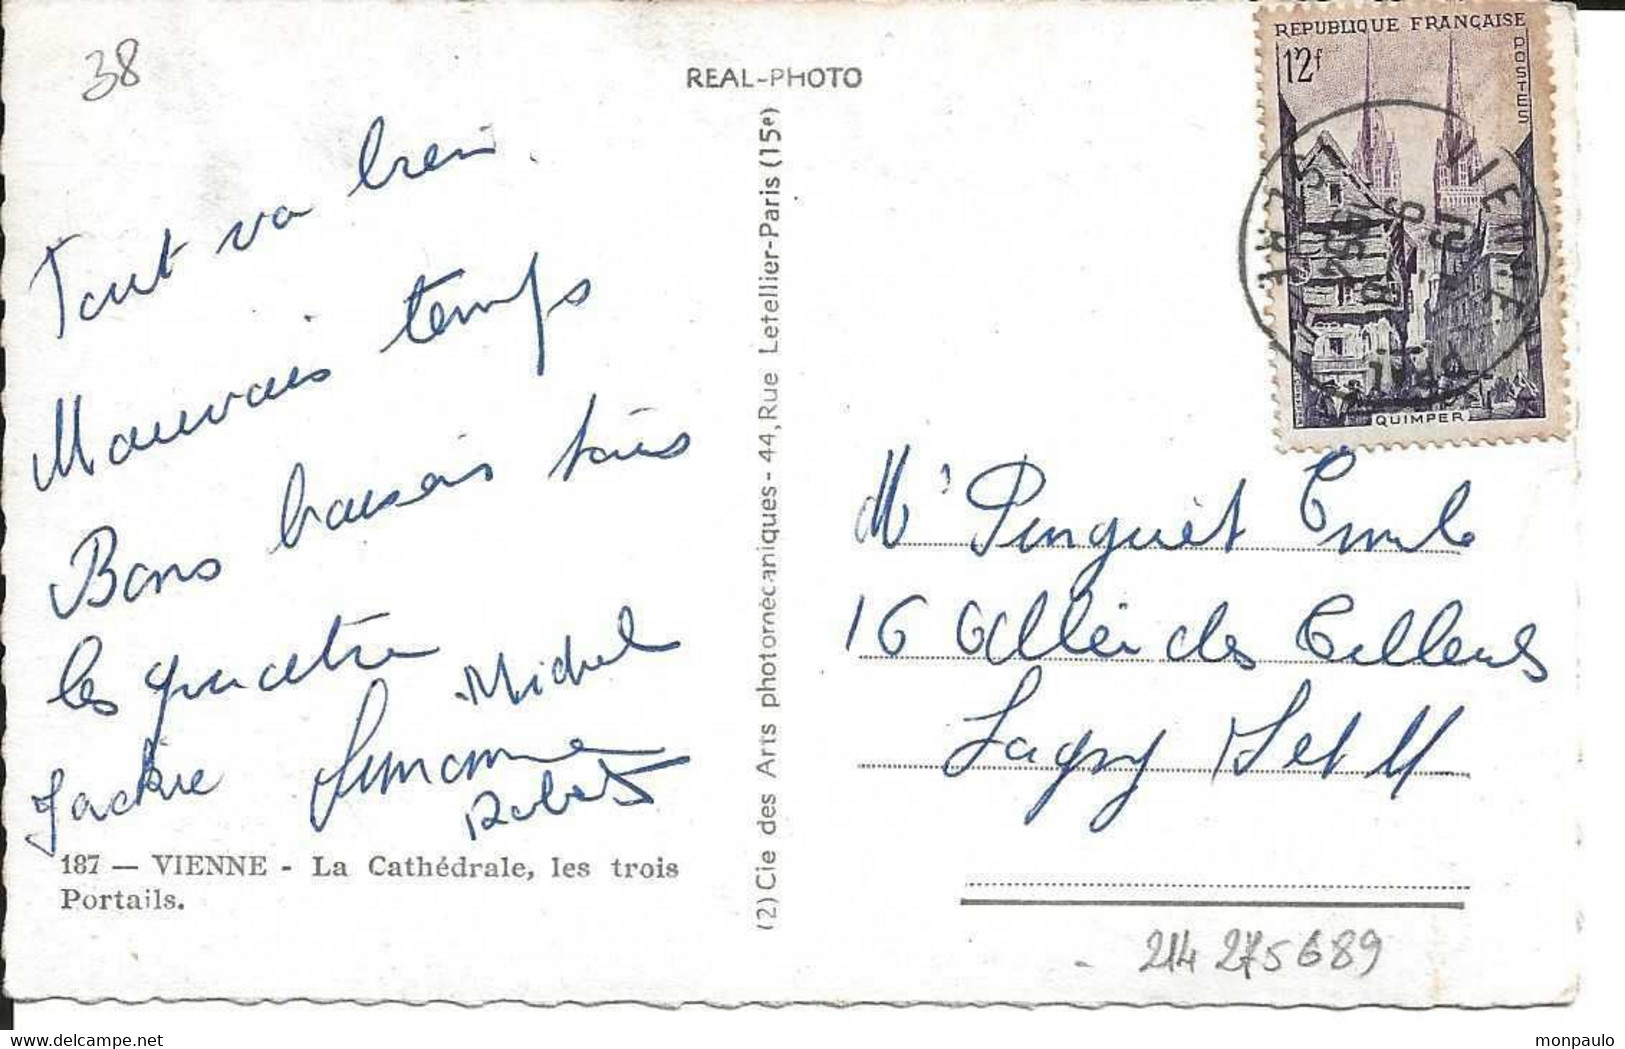 38
REAL-PHOTO
Tout va bien.
Mauvais temps
Bons baisers tous
les quatre
Michel
Jackie Simonne
Robert
187 — VIENNE - La Cathédrale, les trois
Portails.
(2) Cie des Arts photomécaniques - 44, Rue Letellier-Paris (15e)
REPUBLIQUE FRANÇAISE
12f
POSTES
QUIMPER
VIENNE
ISERE
1954
Mr Pinguet Emile
16 Allée des Tilleuls
Lagny S et M
214 275 689
monpaulo